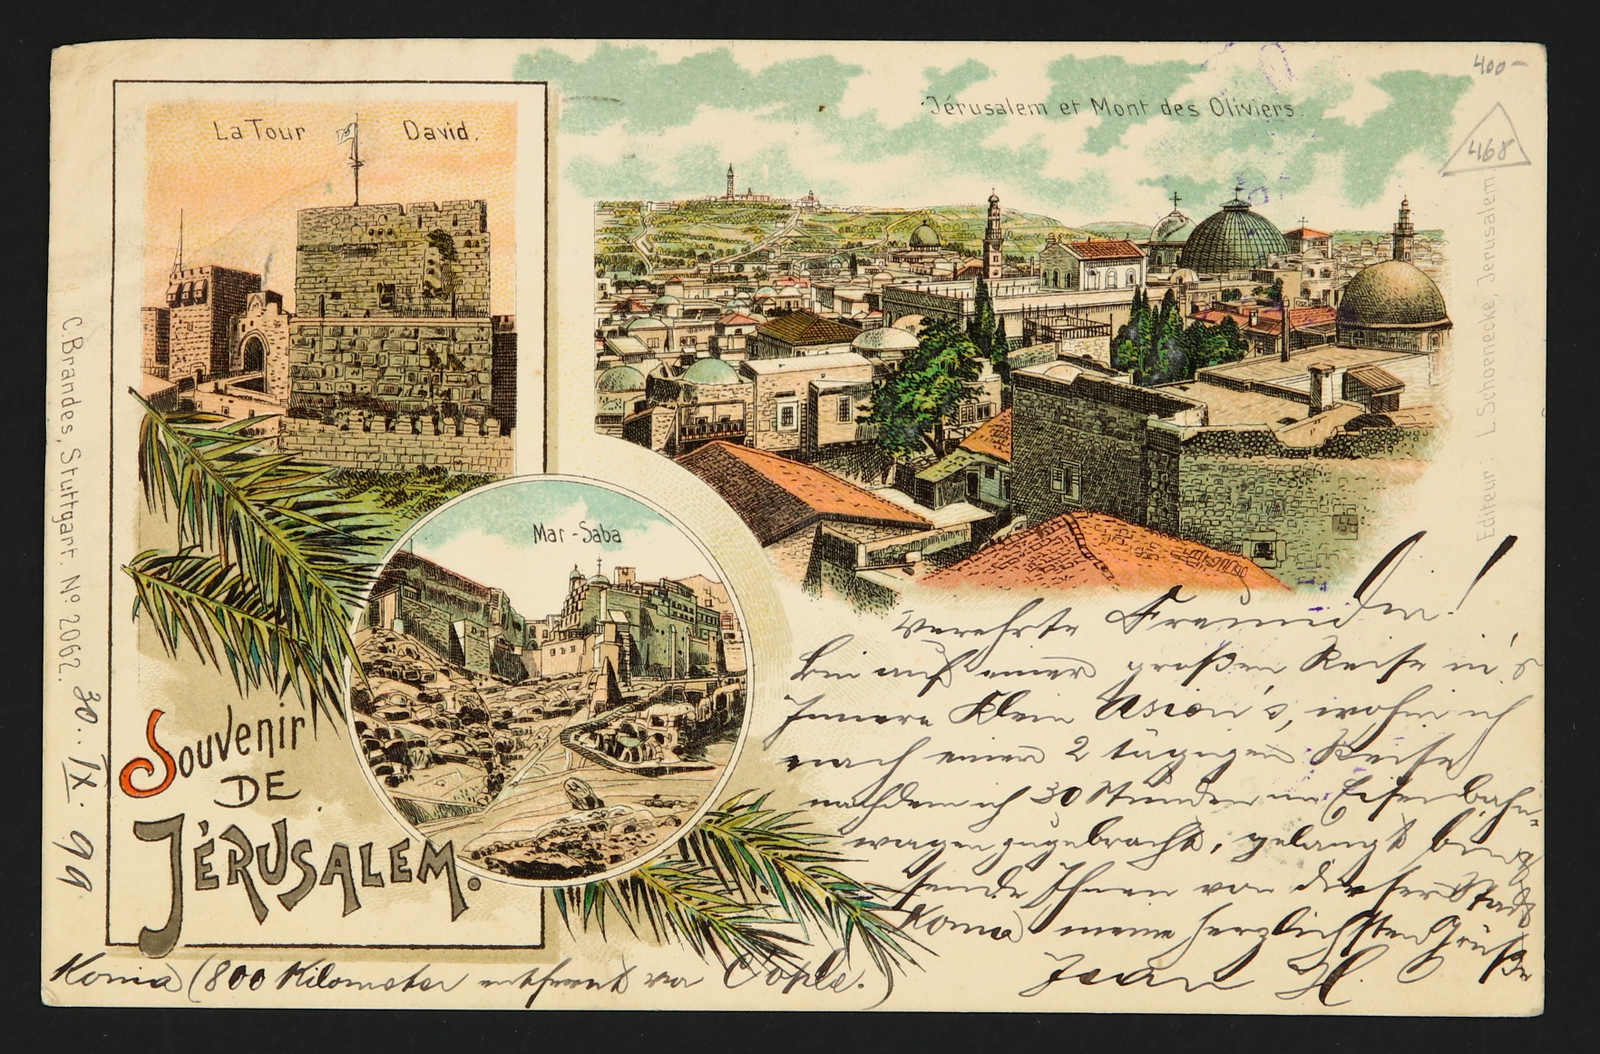 La Tour David.
Jérusalem et Mont des Oliviers.
400-
468
Editeur: L. Schoenecke, Jerusalem
Mar-Saba
C. Brandes, Stuttgart. Nº 2062.
30. IX. 99
Souvenir
DE
JÉRUSALEM.
Verehrte Freundin!
Bin auf einer großen Reise in's
Innere Klein Asien's, wohin ich
nach einer 2 tägigen Reise
nachdem ich 30 Stunden im Eisenbahn-
wagen zugebracht, gelangt bin
sende Ihnen von dieser Stadt
Konia meine herzlichsten Grüße
Konia (800 Kilometer entfernt von Cople.)